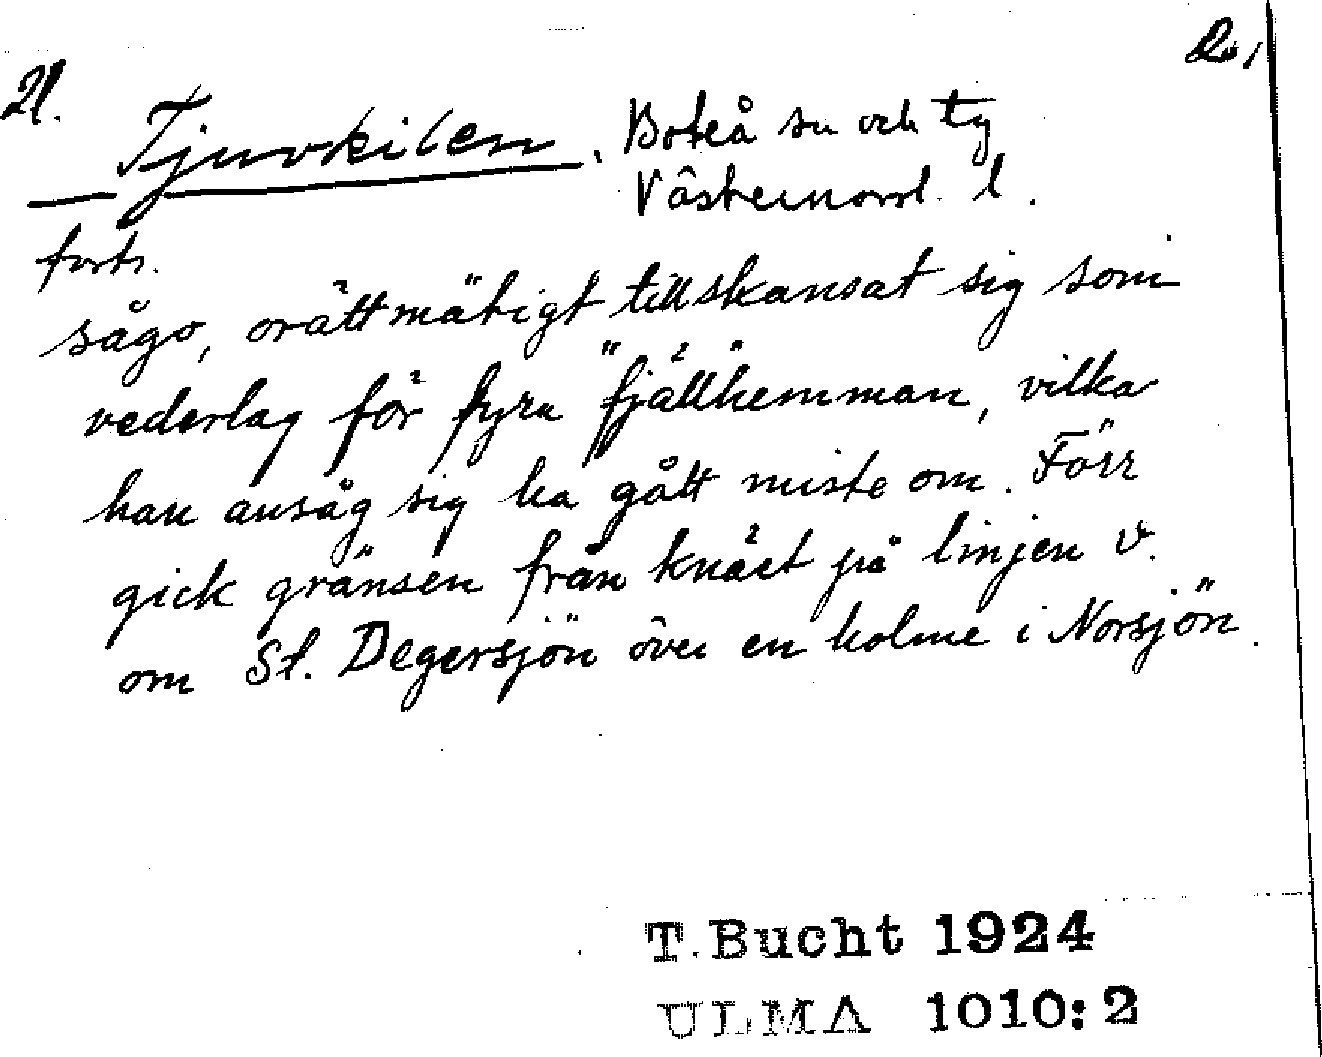 21.
Tjuvkilen. Boteå sn och tg
Västernorrl. l.
forts.
sågo, orättmätigt tillskansat sig som
vederlag för fyra "fjällhemman", vilka
han ansåg sig ha gått miste om. Förr
gick gränsen från knäet på linjen v.
om St. Degersjön över en holme i Norsjön.
T. Bucht 1924
ULMA 1010:2